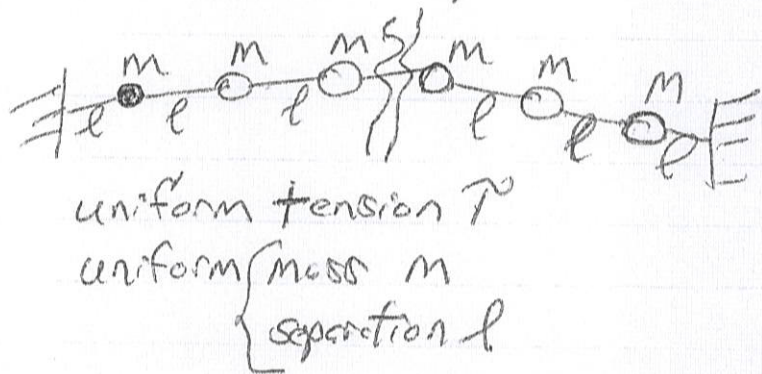 m m m m m m
l l l l l l
uniform tension T
uniform { mass m
separation l